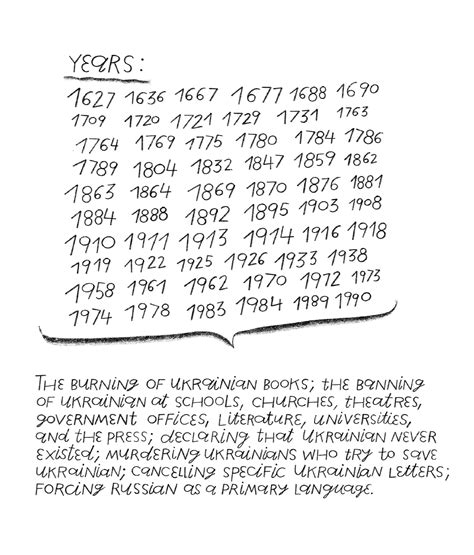 YEARS:
1627 1636 1667 1677 1688 1690
1709 1720 1721 1729 1731 1763
1764 1769 1775 1780 1784 1786
1789 1804 1832 1847 1859 1862
1863 1864 1869 1870 1876 1881
1884 1888 1892 1895 1903 1908
1910 1911 1913 1914 1916 1918
1919 1922 1925 1926 1933 1938
1958 1961 1962 1970 1972 1973
1974 1978 1983 1984 1989 1990
THE BURNING OF UKRAINIAN BOOKS; THE BANNING
OF UKRAINIAN AT SCHOOLS, CHURCHES, THEATRES,
GOVERNMENT OFFICES, LITERATURE, UNIVERSITIES,
AND THE PRESS; DECLARING THAT UKRAINIAN NEVER
EXISTED; MURDERING UKRAINIANS WHO TRY TO SAVE
UKRAINIAN; CANCELLING SPECIFIC UKRAINIAN LETTERS;
FORCING RUSSIAN AS A PRIMARY LANGUAGE.